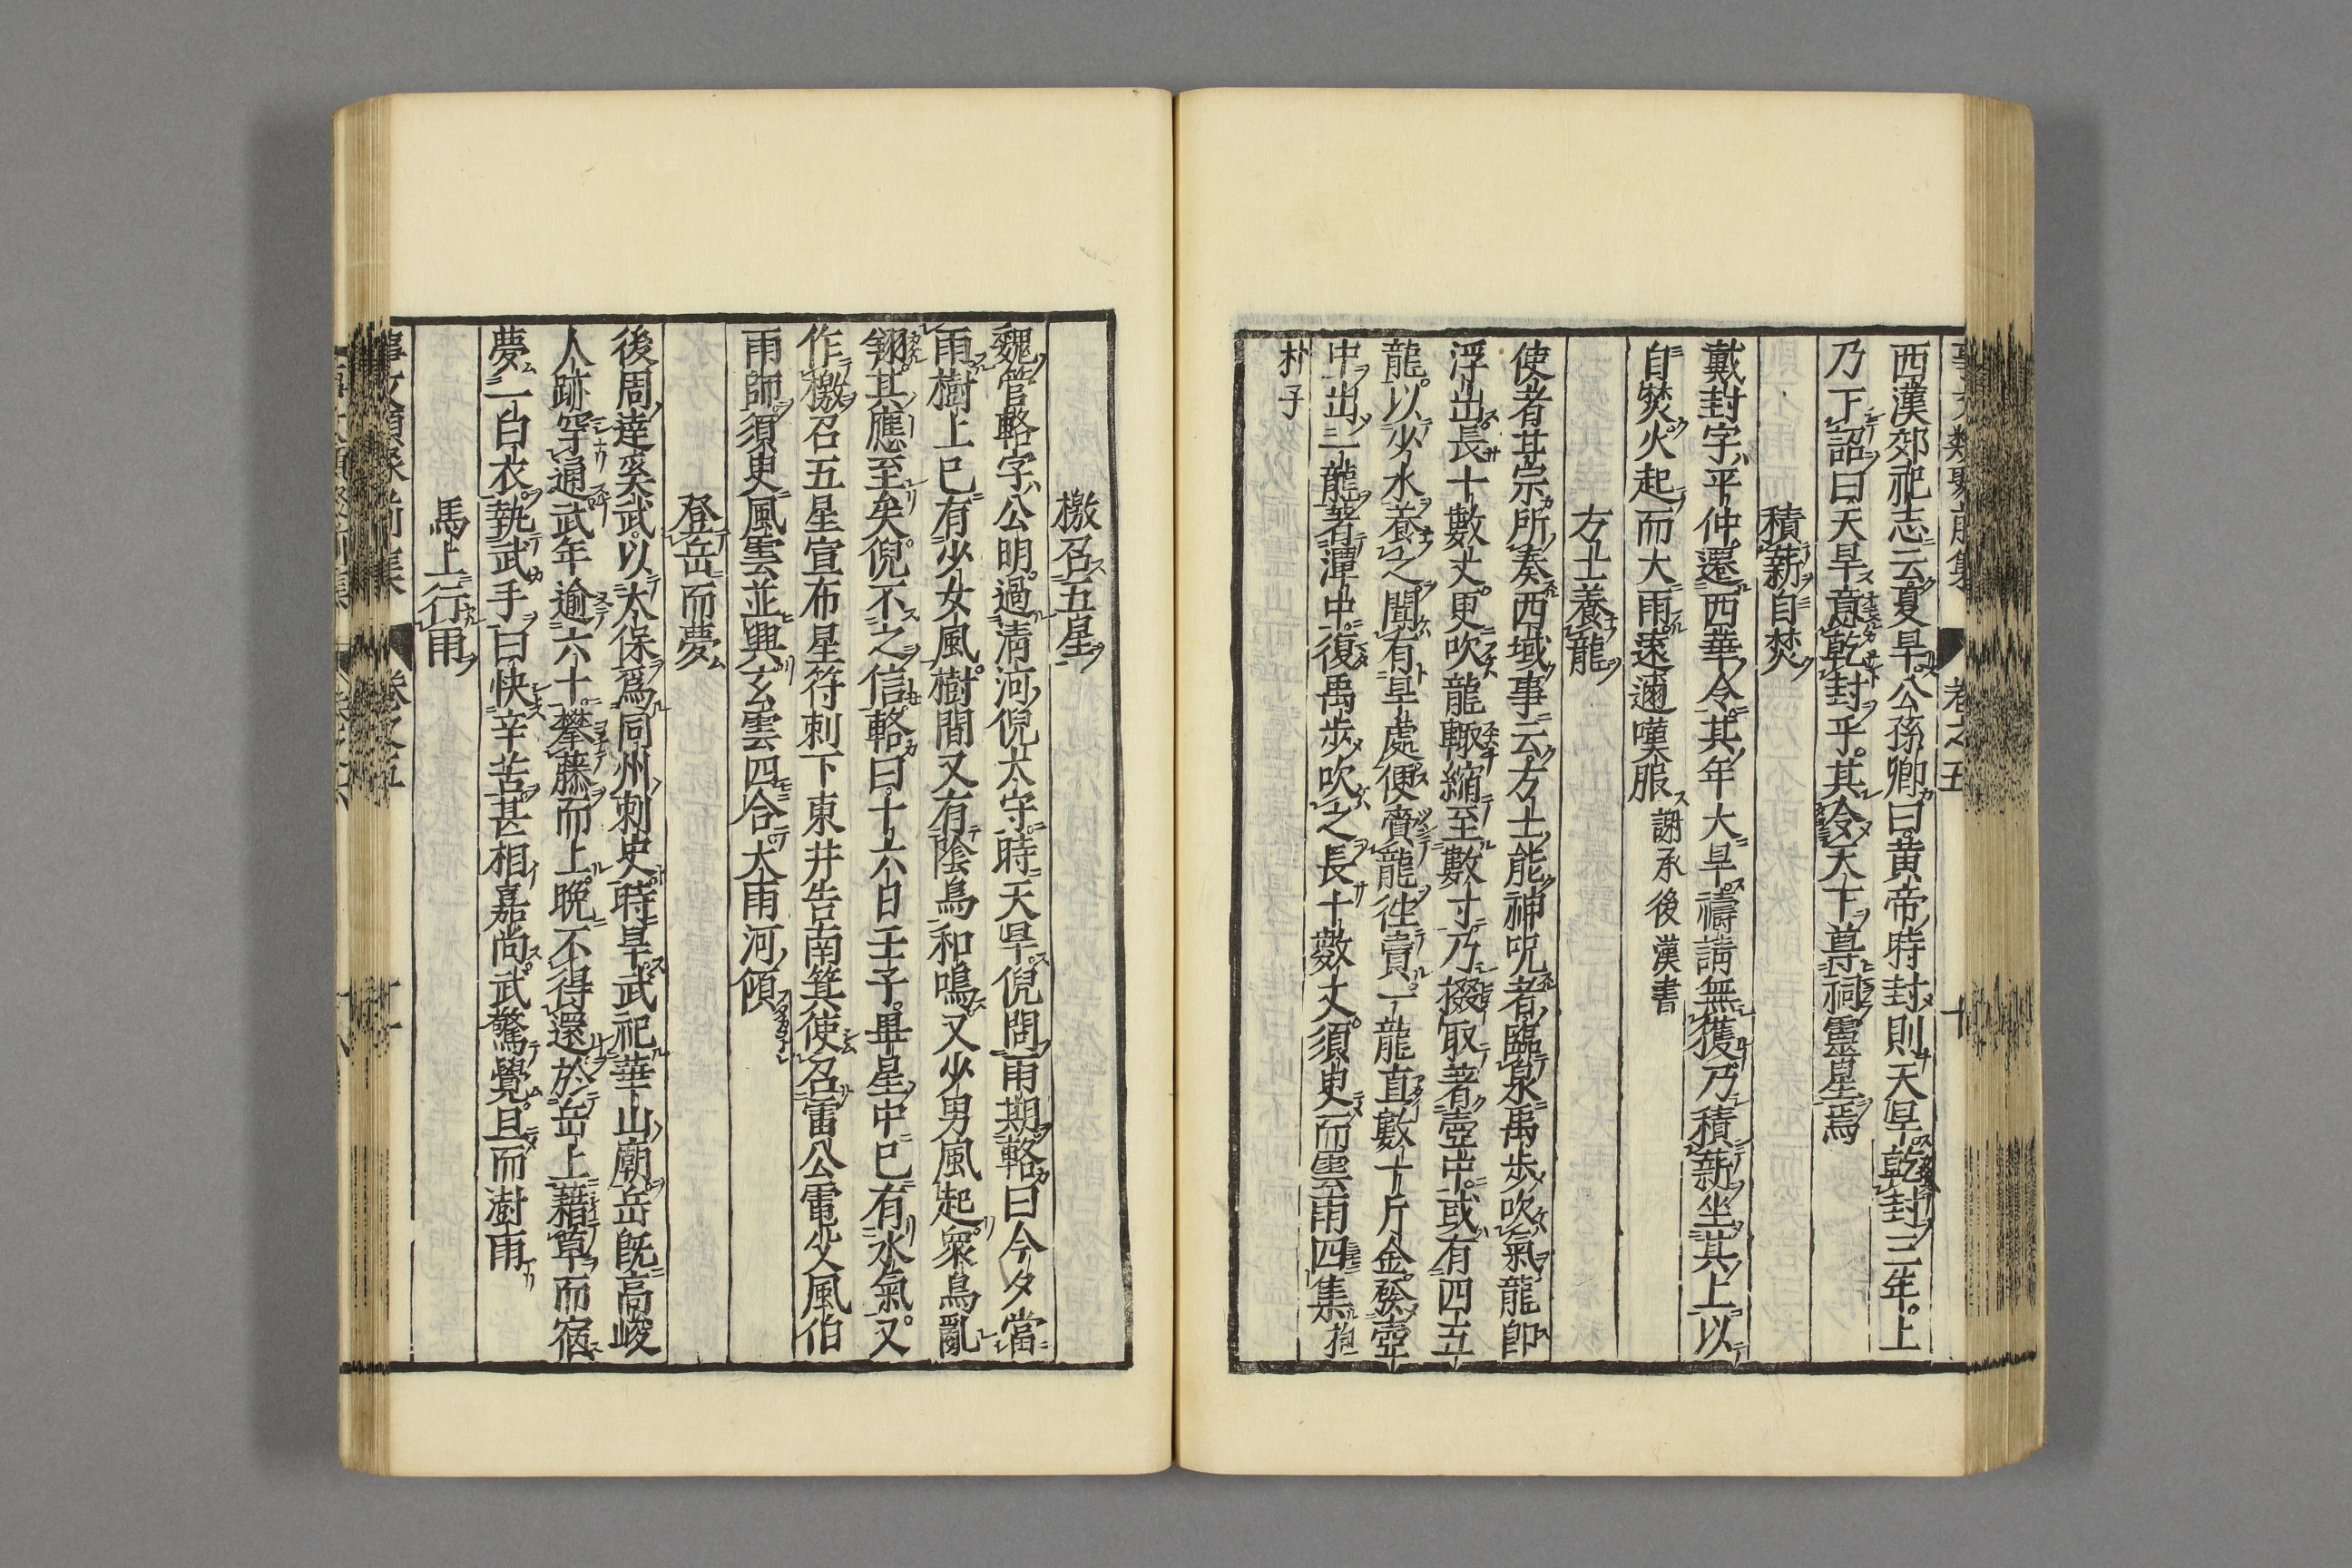 西漢郊祀志云夏旱公孫卿曰黄帝時封則天旱乾封三年上
乃下詔曰天旱意乾封乎其令天下尊祠靈星焉
積薪自焚
戴封字平仲還西華令其年大旱禱請無獲乃積薪坐其上以
自焚火起而大雨遠邇嘆服 謝承後漢書
方士養龍
使者甘宗所奏西域事云方士能神呪者臨泉禹步吹氣龍即
浮出長十數丈更吹龍輙縮至數寸乃掇取著壺中或有四五
龍以少水養之聞有旱處便賫龍徃賣一龍直數十斤金發壺
中出一龍著潭中復禹步吹之長十數丈須臾而雲雨四集 抱
朴子
檄召五星
魏管輅字公明過清河倪太守時天旱倪問雨期輅曰今夕當
雨樹上已有少女風樹間又有陰鳥和鳴又少男風起衆鳥亂
翎其應至矣倪不之信輅曰十六日壬子畢星中已有水氣又
作檄召五星宣布星符刺下東井告南箕使召雷公電父風伯
雨師須臾風雲並興玄雲四合大雨河傾
登岳而夢
後周達奚武以太保爲同州刺史時旱武祀華山廟岳旣高峻
人跡罕通武年逾六十攀藤而上晩不得還於岳上藉草而宿
夢一白衣執武手曰快辛苦甚相嘉尚武驚覺旦而澍雨
馬上行雨
事文類聚前集 卷之五